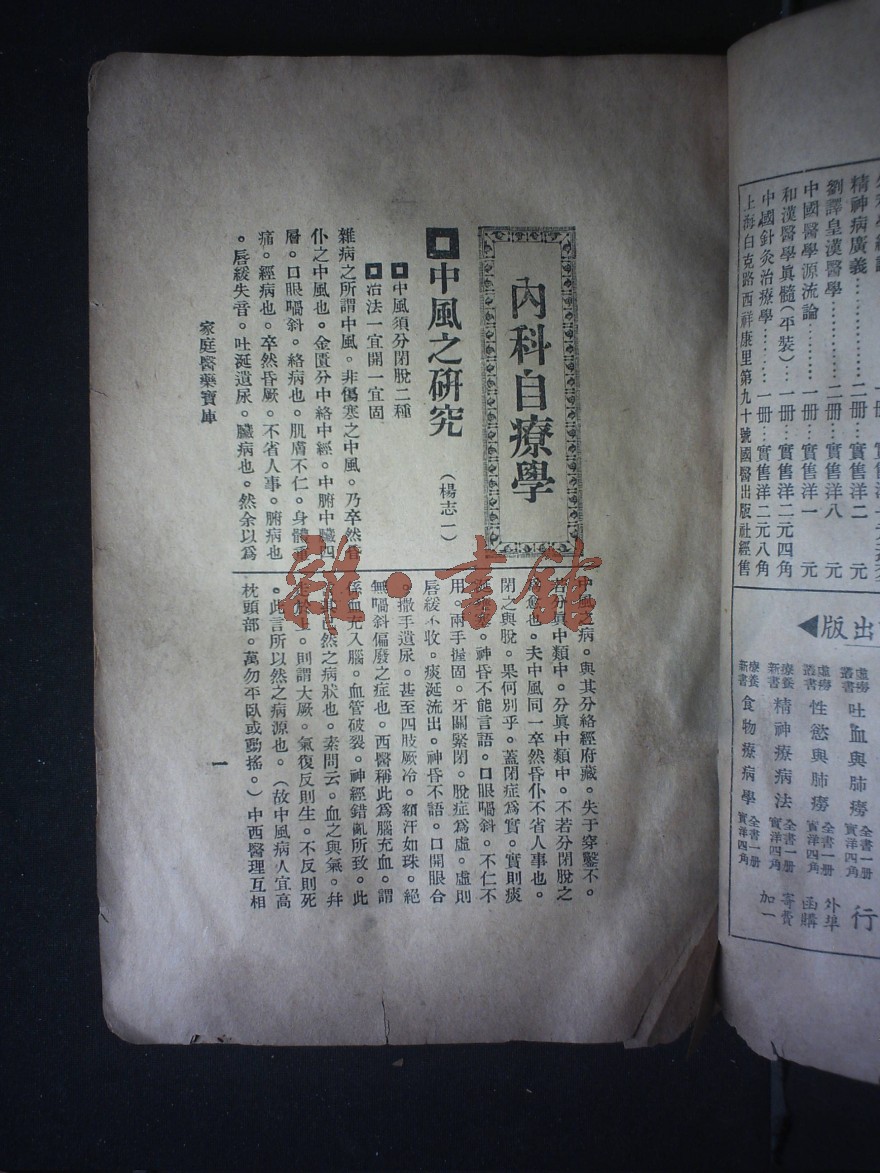 內科自療學
中風之研究
（楊志一）
中風須分閉脫二種
治法一宜開一宜固
雜病之所謂中風。非傷寒之中風。乃卒然昏
仆之中風也。金匱分中絡中經。中腑中臟四
層。口眼喎斜。絡病也。肌膚不仁。身體
痛。經病也。卒然昏厥。不省人事。腑病也
。唇緩失音。吐涎遺尿。臟病也。然余以爲
中風之病。與其分絡經府藏。失于穿鑿不。
若分眞中類中。分眞中類中。不若分閉脫之
愈也。夫中風同一卒然昏仆不省人事也。
閉之與脫。果何別乎。蓋閉症爲實。實則痰
神昏不能言語。口眼喎斜。不仁不
用。兩手握固。牙關緊閉。脫症爲虛。虛則
唇緩不收。痰涎流出。神昏不語。口開眼合
。撒手遺尿。甚至四肢厥冷。額汗如珠。絕
無喎斜偏廢之症也。西醫稱此爲腦充血。謂
係血冲入腦。血管破裂。神經錯亂所致。此
言其已然之病狀也。素問云。血之與氣。幷
走於上。則謂大厥。氣復反則生。不反則死
。此言所以然之病源也。（故中風病人宜高
枕頭部。萬勿平臥或動搖。）中西醫理互相
家庭醫藥寶庫
一
雜·書館
精神病廣義……二册…實售洋二 元
劉譯皇漢醫學……二册…實售洋八 元
中國醫學源流論……一册…實售洋一 元
和漢醫學眞髓（平裝）…一册…實售洋二元四角
中國針灸治療學……一册…實售洋二元八角
上海白克路西祥康里第九十號國醫出版社經售
出版
虛癆叢書 吐血與肺癆 全書一册 實洋四角
虛癆叢書 性慾與肺癆 全書一册 實洋四角
療養新書 精神療病法 全書一册 實洋四角
療養新書 食物療病學 全書一册 實洋四角
外埠
函購
寄費
加一
行